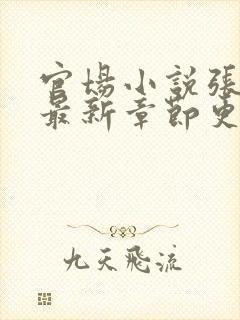 官場小説張
最新章節更
九天飛流